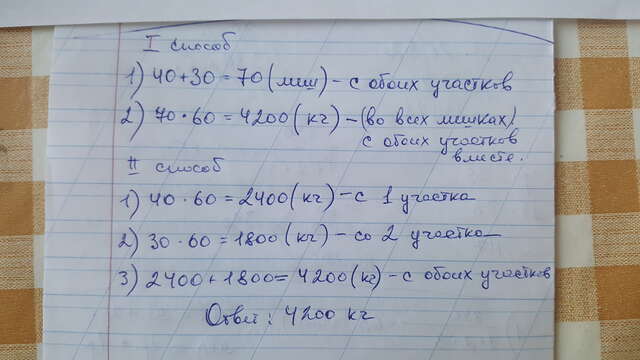 I способ
1) 40+30=70(меш) – с обоих участков
2) 70·60=4200(кг) – (во всех мешках)
с обоих участков
вместе.
II способ
1) 40·60=2400(кг) – с 1 участка
2) 30·60=1800(кг) – со 2 участка
3) 2400+1800=4200(кг) – с обоих участков
Ответ: 4200 кг